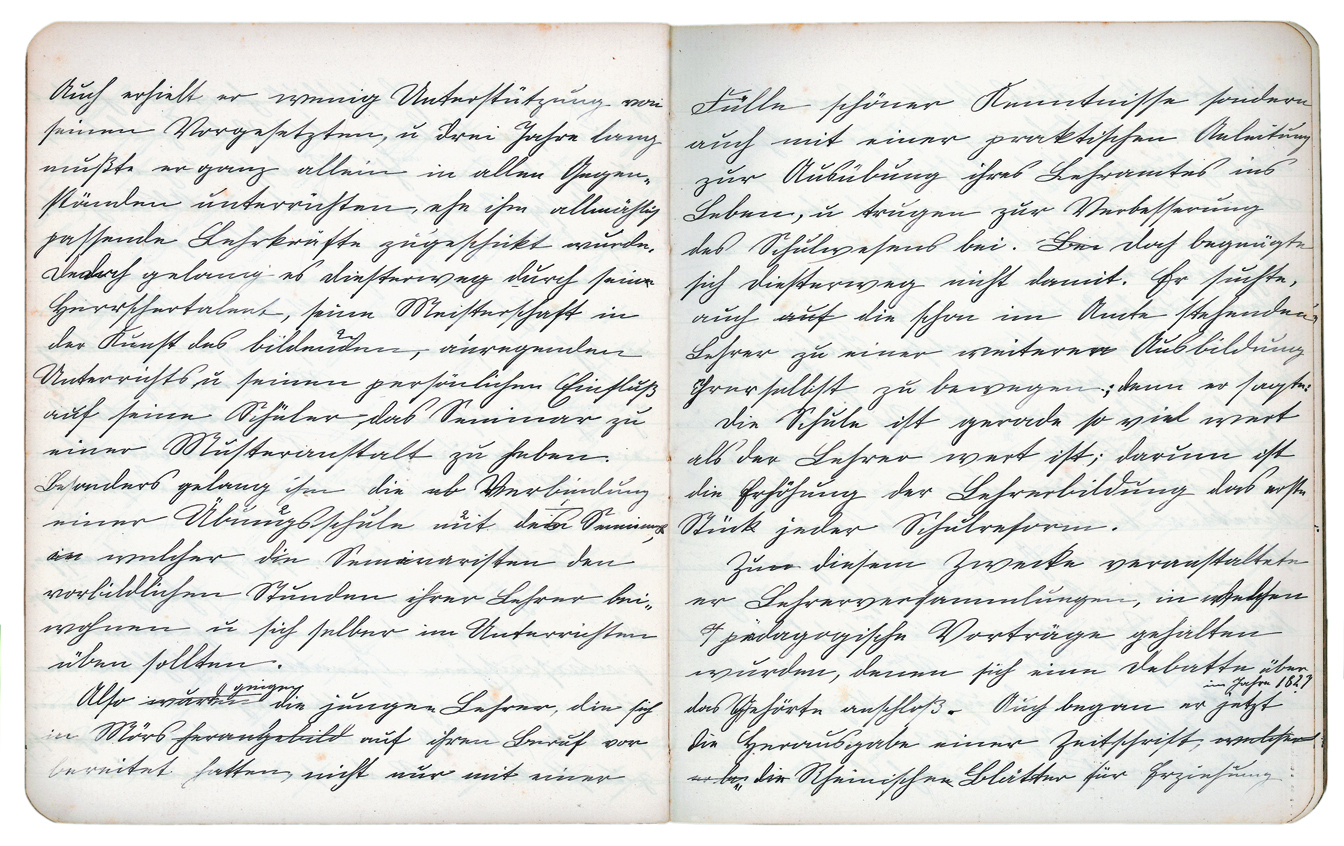 Auch erhielt er wenig Unterstützung von
seinen Vorgesetzten, u drei Jahre lang
mußte er ganz allein in allen Gegen-
ständen unterrichten, ehe ihm allmählig
passende Lehrkräfte zugeschikt wurde.
gelang es Diesterweg durch seine
Herrschertalent, seine Meisterschaft in
der Kunst des bildenden, anregenden
Unterrichts u seinen persönlichen Einfluß
auf seine Schüler, das Seminar zu
einer Musteranstalt zu heben.
Besonders gelang ihm die Verbindung
einer Übungsschule mit dem Seminar,
an welcher die Seminaristen den
vorbildlichen Stunden ihrer Lehrer bei-
wohnen u sich selber im Unterrichten
üben sollten.
gingen
Also wurden die jungen Lehrer, die sich
in Mörs herangebild auf ihren Beruf vor
bereitet hatten, nicht nur mit einer
Fülle schöner Kenntnisse sondern
auch mit einer praktischen Anleitung
zur Ausübung ihres Lehramtes ins
Leben, u trugen zur Verbesserung
des Schulwesens bei. Bei doch begnügte
sich Diesterweg nicht damit. Er suchte,
auch auf die schon im Amte stehenden
Lehrer zu einer weiteren Ausbildung
ihrerselbst zu bewegen; denn er sagte:
Die Schule ist gerade so viel wert
als der Lehrer wert ist; darum ist
die Erhöhung der Lehrerbildung das erste
Stück jeder Schulreform.
Zum diesem Zwecke veranstaltete
er Lehrerversammlungen, in welchen
pädagogische Vorträge gehalten
wurden, denen sich eine Debatte über
im Jahre 1827
das Gehörte anschloß. Auch began er jetzt
die Herausgabe einer Zeitschrift, welcher
die Rheinischen Blätter für Erziehung